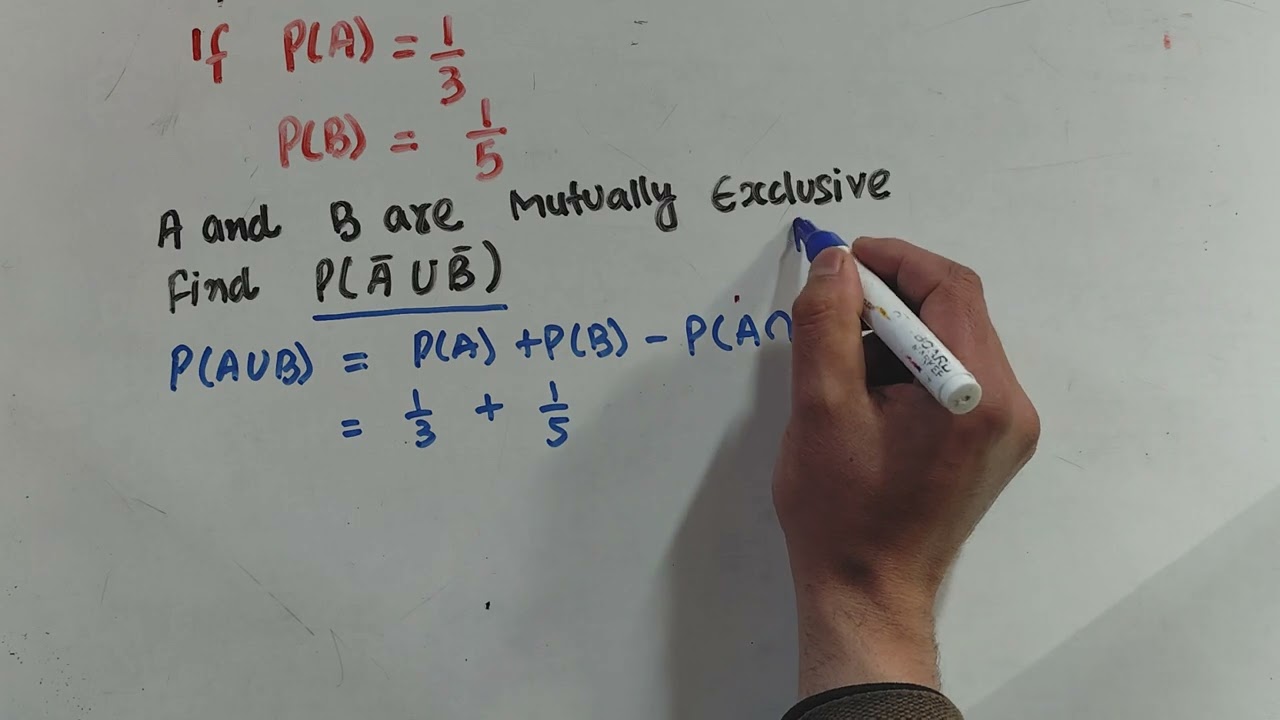 If P(A) = 1/3
P(B) = 1/5
A and B are Mutually Exclusive
Find P(Ā ∪ B̄)
P(A∪B) = P(A) + P(B) - P(A∩
= 1/3 + 1/5